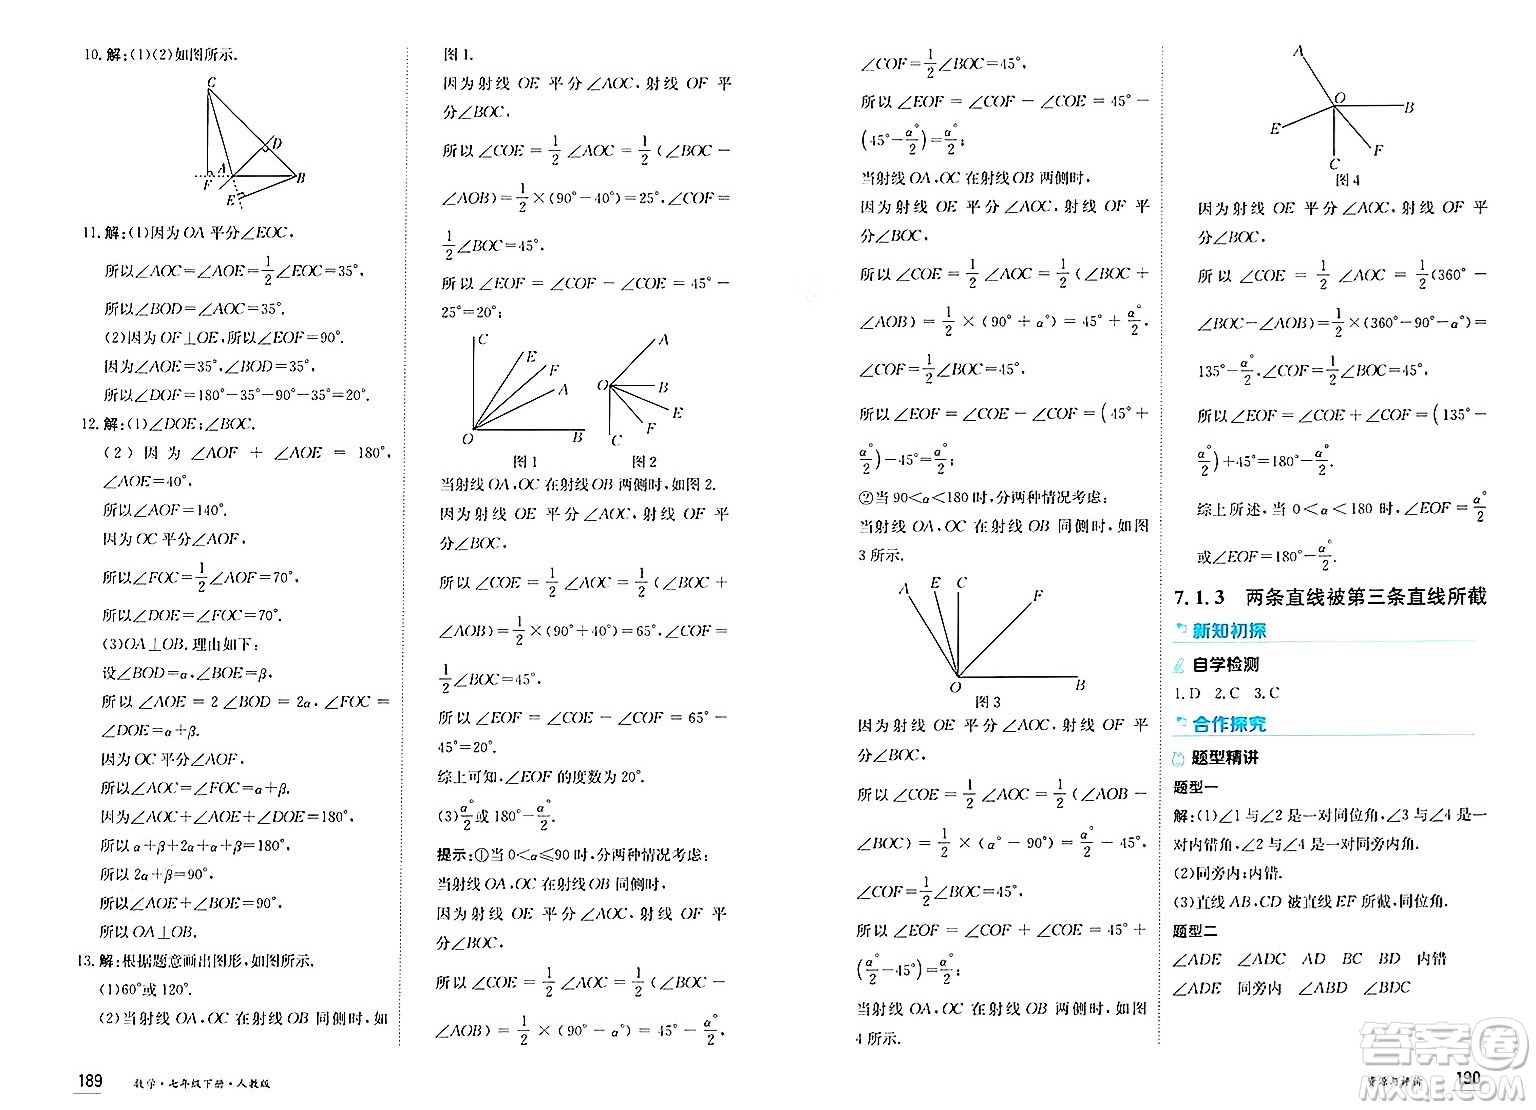 10. 解:(1)(2)如图所示.
C
D
F
A
B
E
11. 解:(1)因为 OA 平分∠EOC,
所以∠AOC=∠AOE=1/2∠EOC=35°,
所以∠BOD=∠AOC=35°.
(2)因为 OF⊥OE,所以∠EOF=90°.
因为∠AOE=35°,∠BOD=35°,
所以∠DOF=180°-35°-90°-35°=20°.
12. 解:(1)∠DOE;∠BOC.
(2) 因 为 ∠AOF + ∠AOE = 180°,
∠AOE=40°,
所以∠AOF=140°.
因为 OC 平分∠AOF,
所以∠FOC=1/2∠AOF=70°,
所以∠DOE=∠FOC=70°.
(3)OA⊥OB. 理由如下:
设∠BOD=α,∠BOE=β,
所以 ∠AOE = 2∠BOD = 2α,∠FOC =
∠DOE=α+β.
因为 OC 平分∠AOF,
所以∠AOC=∠FOC=α+β.
因为∠AOC+∠AOE+∠DOE=180°,
所以 α+β+2α+α+β=180°,
所以 2α+β=90°,
所以∠AOE+∠BOE=90°.
所以 OA⊥OB.
13. 解:根据题意画出图形,如图所示.
(1)60°或 120°.
(2)当射线 OA,OC 在射线 OB 同侧时,如
189 数学·七年级下册·人教版
图 1.
因为射线 OE 平分∠AOC,射线 OF 平
分∠BOC,
所以 ∠COE = 1/2 ∠AOC = 1/2(∠BOC −
∠AOB) = 1/2 ×(90° − 40°) = 25°, ∠COF =
1/2∠BOC=45°.
所以 ∠EOF = ∠COF − ∠COE = 45° −
25°=20°;
C
E
F
A
O
B
图 1
A
O
B
E
F
C
图 2
当射线 OA,OC 在射线 OB 两侧时,如图 2.
因为射线 OE 平分∠AOC,射线 OF 平
分∠BOC,
所以 ∠COE = 1/2 ∠AOC = 1/2 (∠BOC +
∠AOB) = 1/2 ×(90°+40°)=65°,∠COF=
1/2∠BOC=45°,
所以 ∠EOF = ∠COE − ∠COF = 65° −
45°=20°.
综上可知,∠EOF 的度数为 20°.
(3)α°/2或 180°−α°/2.
提示:①当 0<α≤90 时,分两种情况考虑:
当射线 OA,OC 在射线 OB 同侧时,
因为射线 OE 平分∠AOC,射线 OF 平
分∠BOC,
所以 ∠COE = 1/2 ∠AOC = 1/2 (∠BOC −
∠AOB) = 1/2 × (90° − α°) = 45° − α°/2,
∠COF=1/2∠BOC=45°,
所以 ∠EOF = ∠COF − ∠COE = 45° −
(45°−α°/2)=α°/2;
当射线 OA,OC 在射线 OB 两侧时,
因为射线 OE 平分∠AOC,射线 OF 平
分∠BOC,
所以 ∠COE = 1/2 ∠AOC = 1/2 (∠BOC +
∠AOB) = 1/2 × (90° + α°) = 45° + α°/2,
∠COF=1/2∠BOC=45°,
所以 ∠EOF = ∠COE − ∠COF = (45° +
α°/2)−45°=α°/2;
②当 90<α<180 时,分两种情况考虑:
当射线 OA,OC 在射线 OB 同侧时,如图
3 所示.
A
E
C
F
O
B
图 3
因为射线 OE 平分∠AOC,射线 OF 平
分∠BOC,
所以 ∠COE = 1/2 ∠AOC = 1/2(∠AOB −
∠BOC) = 1/2 × (α° − 90°) = α°/2 − 45°,
∠COF=1/2∠BOC=45°,
所以 ∠EOF = ∠COF + ∠COE = 45° +
(α°/2−45°)=α°/2;
当射线 OA,OC 在射线 OB 两侧时,如图
4 所示.
A
O
B
E
F
C
图 4
因为射线 OE 平分∠AOC,射线 OF 平
分∠BOC,
所以 ∠COE = 1/2 ∠AOC = 1/2(360° −
∠BOC−∠AOB)=1/2×(360°−90°−α°)=
135°−α°/2,∠COF=1/2∠BOC=45°,
所以 ∠EOF = ∠COE + ∠COF = (135° −
α°/2)+45°=180°−α°/2.
综上所述,当 0<α<180 时,∠EOF=α°/2
或∠EOF=180°−α°/2.
7.1.3 两条直线被第三条直线所截
新知初探
自学检测
1.D 2.C 3.C
合作探究
题型精讲
题型一
解:(1)∠1 与∠2 是一对同位角,∠3 与∠4 是一
对内错角,∠2 与∠4 是一对同旁内角.
(2)同旁内;内错.
(3)直线 AB,CD 被直线 EF 所截,同位角.
题型二
∠ADE ∠ADC AD BC BD 内错
∠ADE 同旁内 ∠ABD ∠BDC
答案圈
资源与评价 190